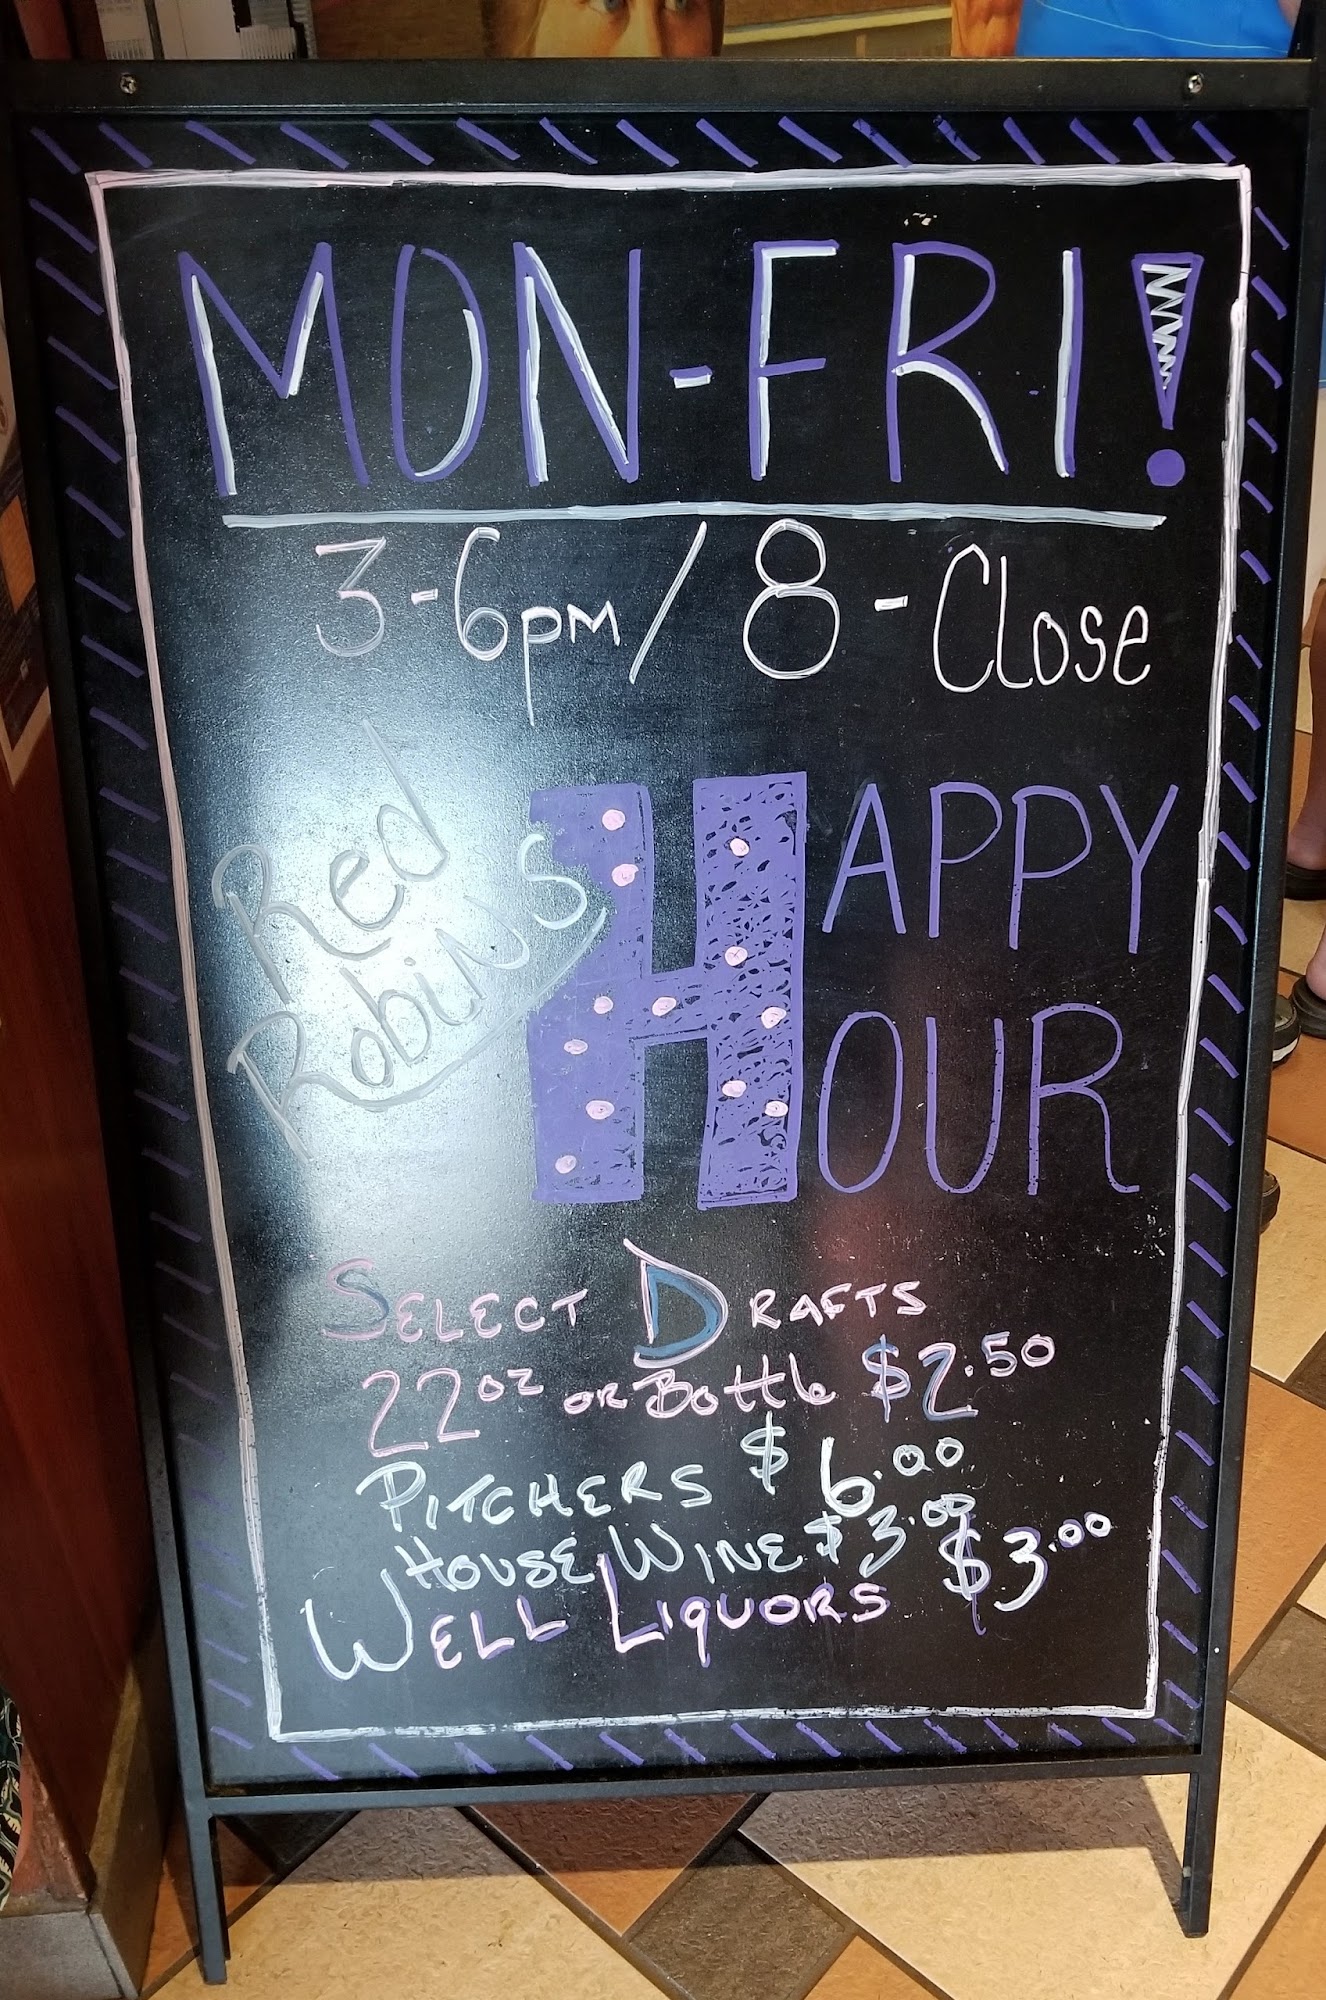 MON-FRI!
3-6pm / 8-Close
Red
Robins
HAPPY
HOUR
SELECT DRAFTS
22oz OR Bottle $2.50
PITCHERS $6.00
HOUSE WINE $3.00
WELL LIQUORS $3.00